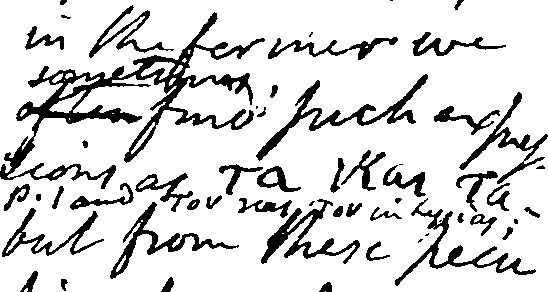 in the former we
sometimes
often find such expres-
sions as τα και τα
p. 1 and τον και τον in Lysias;-
but from these pecu